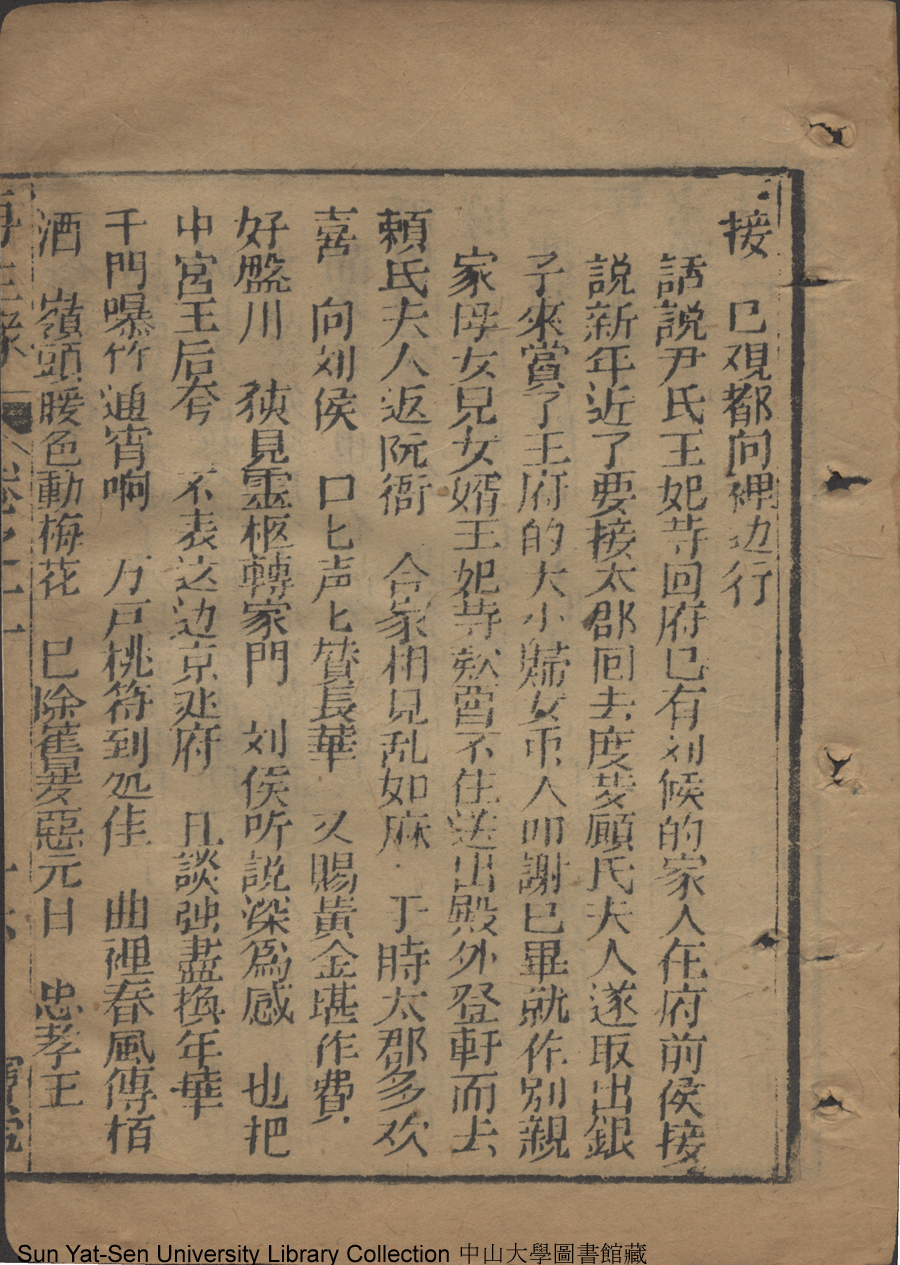 接　已覌都向裡边行
話說尹氏王妃䒭回府已有刘候的家人在府前侯接
說新年近了要接太郡回去度歲顧氏夫人遂取出銀
子來賞了王府的大小婦女巿人叩謝已畢就作別親
家母女兒女婿王妃䒭欵畱不住送出殿外登軒而去
頼氏夫人返阮衙　合家相見乱如麻　于時太郡多欢
喜　向刘侯　口匕声匕賛長華　又賜黃金堪作費
好盤川　　見靈柩轉家門　刘侯听説深爲感　也把
中宮王后夸　不表这边京　府　且談　盡換年華
千門曝竹通宵响　万戸桃符到处佳　曲裡春風傳栢
酒　嶺頭暖色動梅花　已除舊歲　元日　忠孝王
再生緣　卷之二十